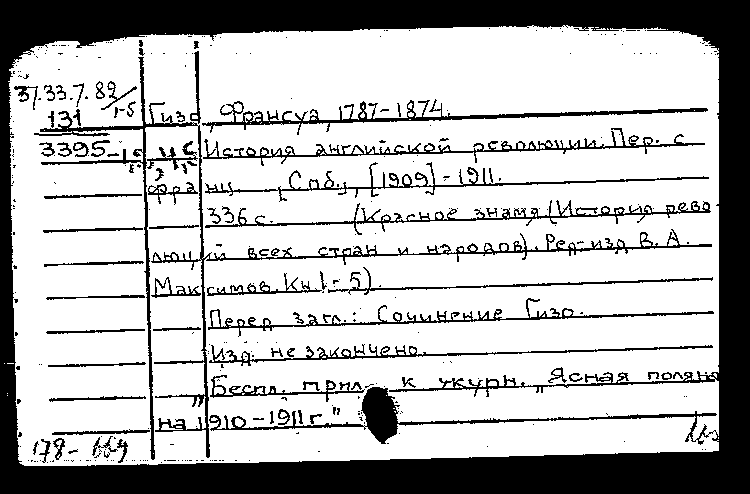 37.33.7.82/1-5
131 Гизо, Франсуа, 1787-1874.
3395 История английской революции. Пер. с
франц. [Спб.], [1909]-1911.
336 с. (Красное знамя (История рево-
люций всех стран и народов). Ред-изд В. А.
Максимов. Кн 1-5).
Перед загл.: Сочинение Гизо.
Изд. не закончено.
"Беспл. прил. к журн. "Ясная поляна
на 1910-1911 г.".
178-669